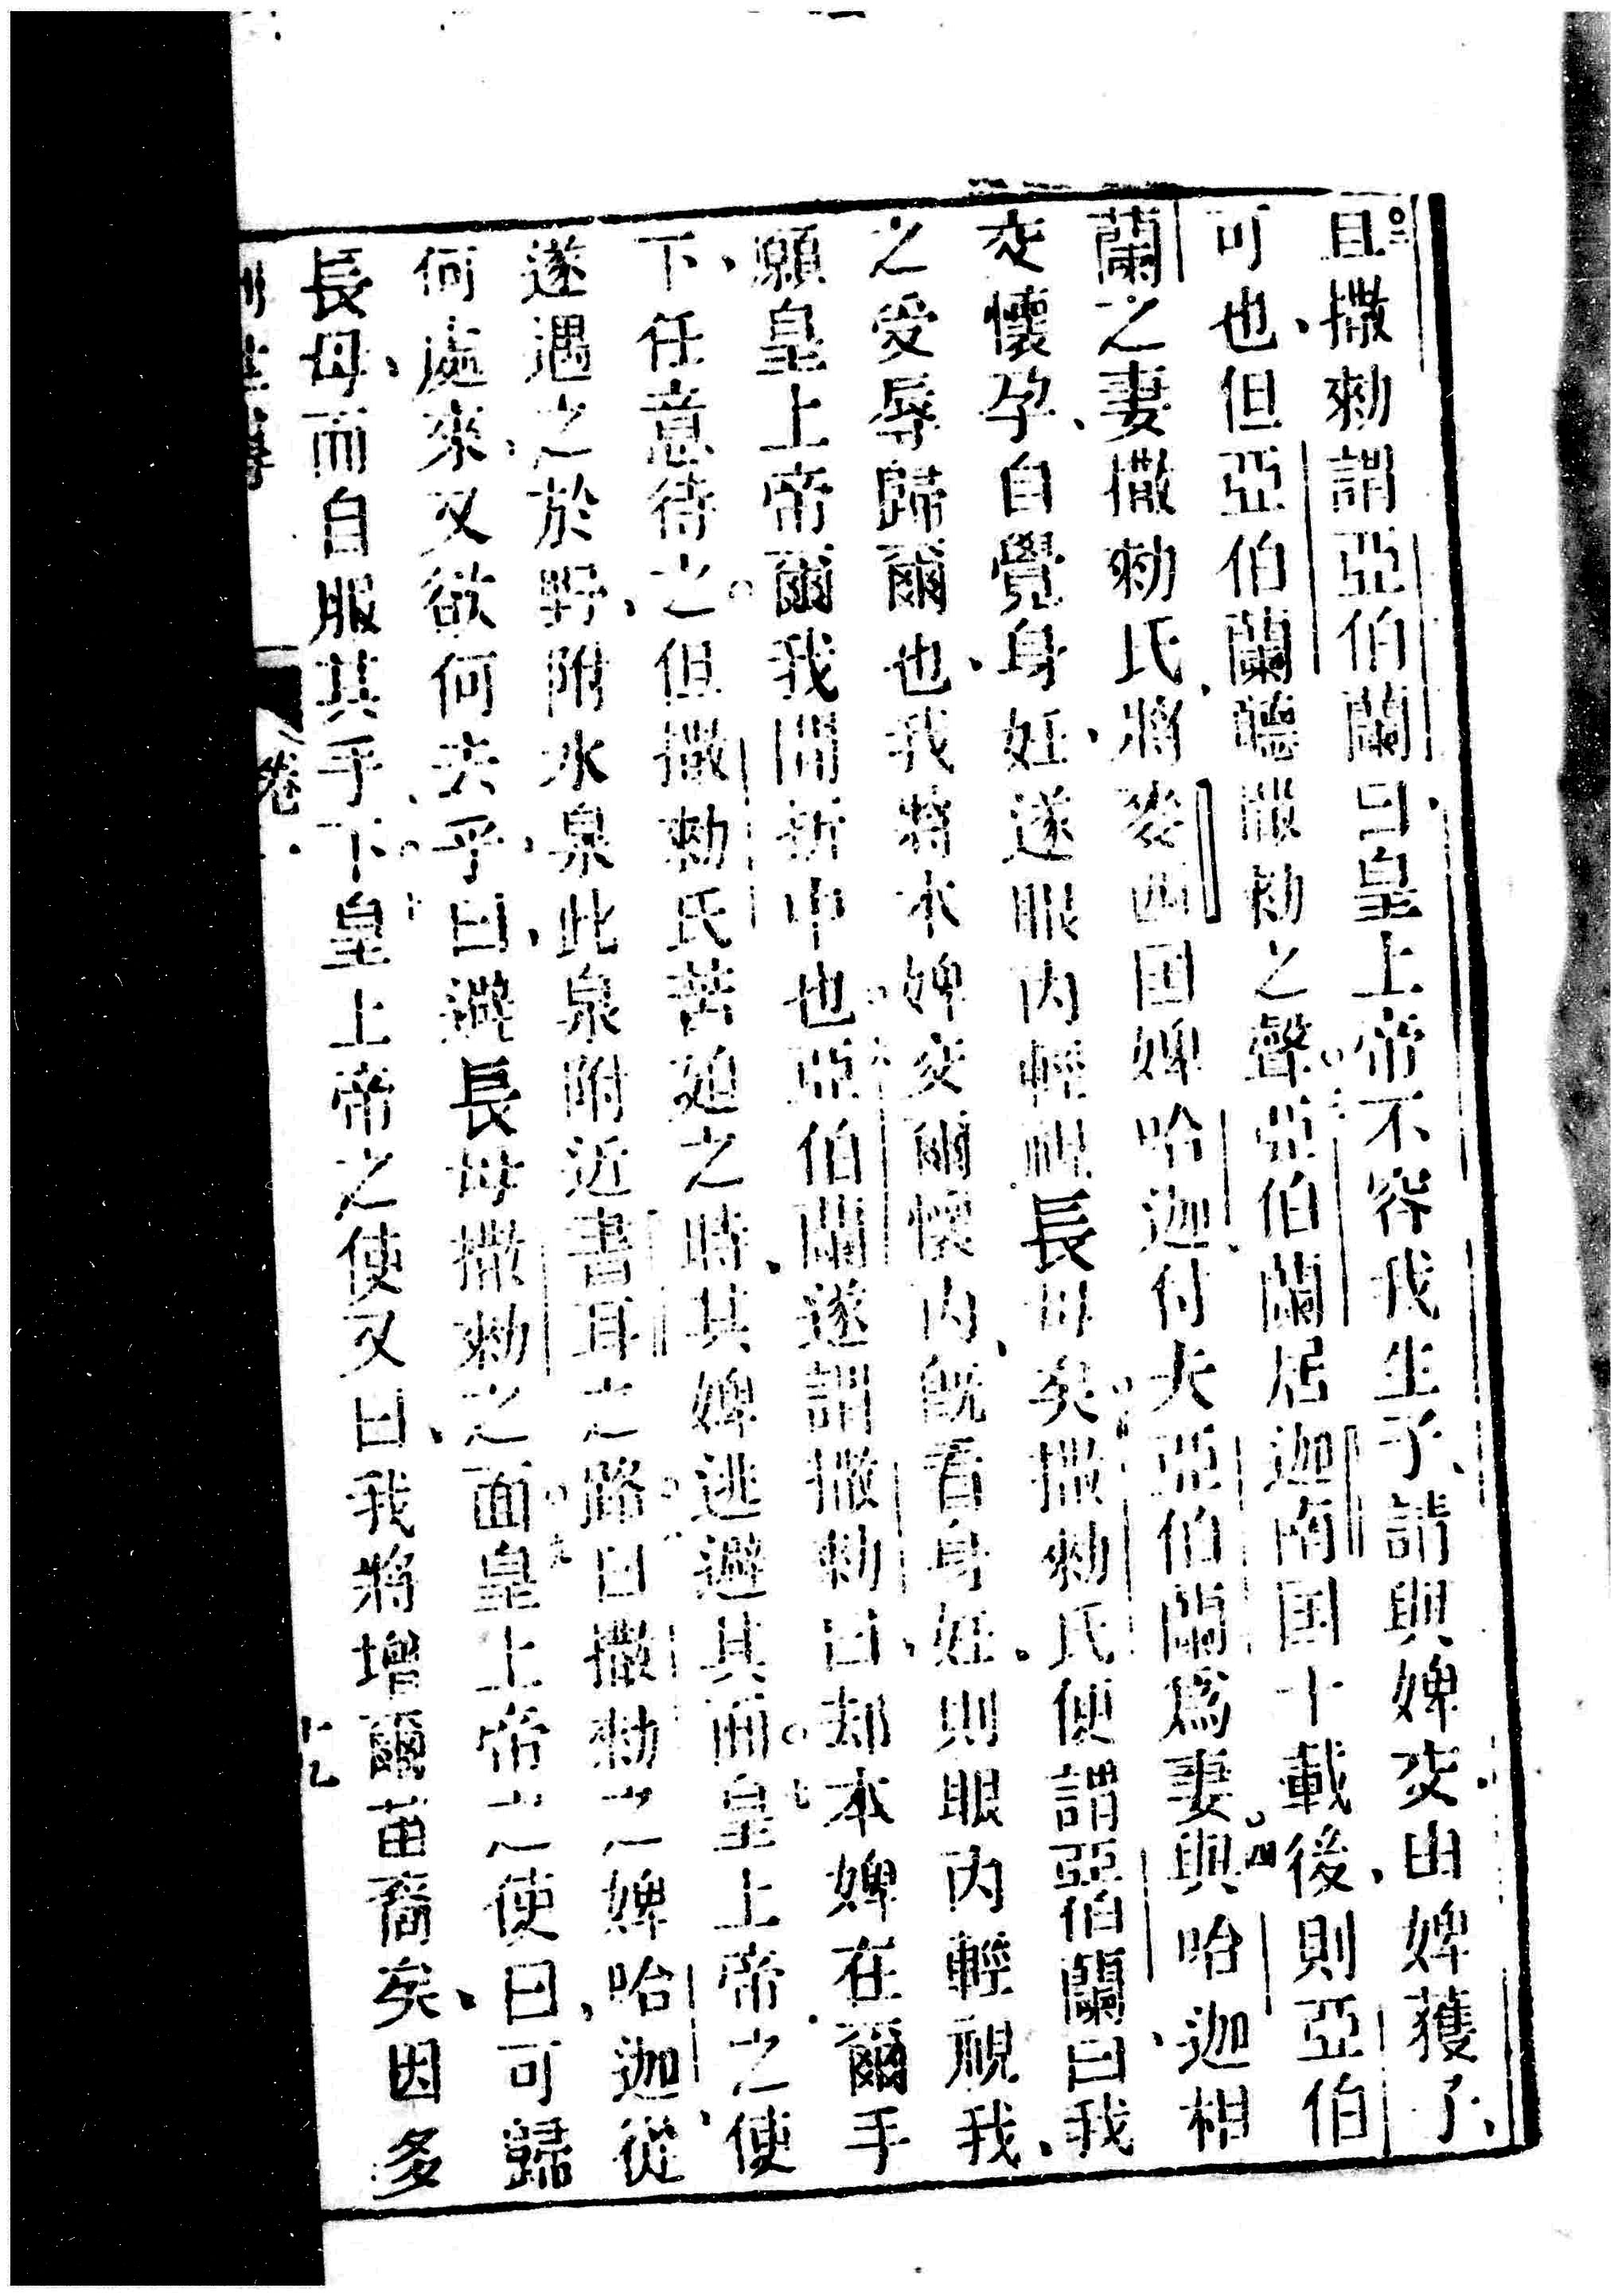 且撒勑謂亞伯蘭曰皇上帝不容我生子、請與婢交由婢獲子、
可也、但亞伯蘭聽撒勑之聲。亞伯蘭居迦南国十載後、則亞伯
蘭之妻撒勑氏、將麥西国婢哈迦付夫亞伯蘭爲妻。四與哈迦相
交懷孕、自覺身妊、遂眼內輕視長母矣。撒勑氏便謂亞伯蘭曰、我
之受辱歸爾也、我將本婢交爾懷內、旣看身妊、則眼內輕視我、
願皇上帝爾我間折中也。亞伯蘭遂謂撒勑曰、却本婢在爾手
下、任意待之。但撒勑氏苦廹之時、其婢逃避其面。七皇上帝之使
遂遇之於野、附水泉此泉附近書耳之路。曰撒勑之婢哈迦、從
何處來、又欲何去乎、曰、避長母撒勑之面。九皇上帝之使曰、可歸
長母、而自服其手下。十皇上帝之使又曰、我將增爾苗裔矣、因多
卷
十九